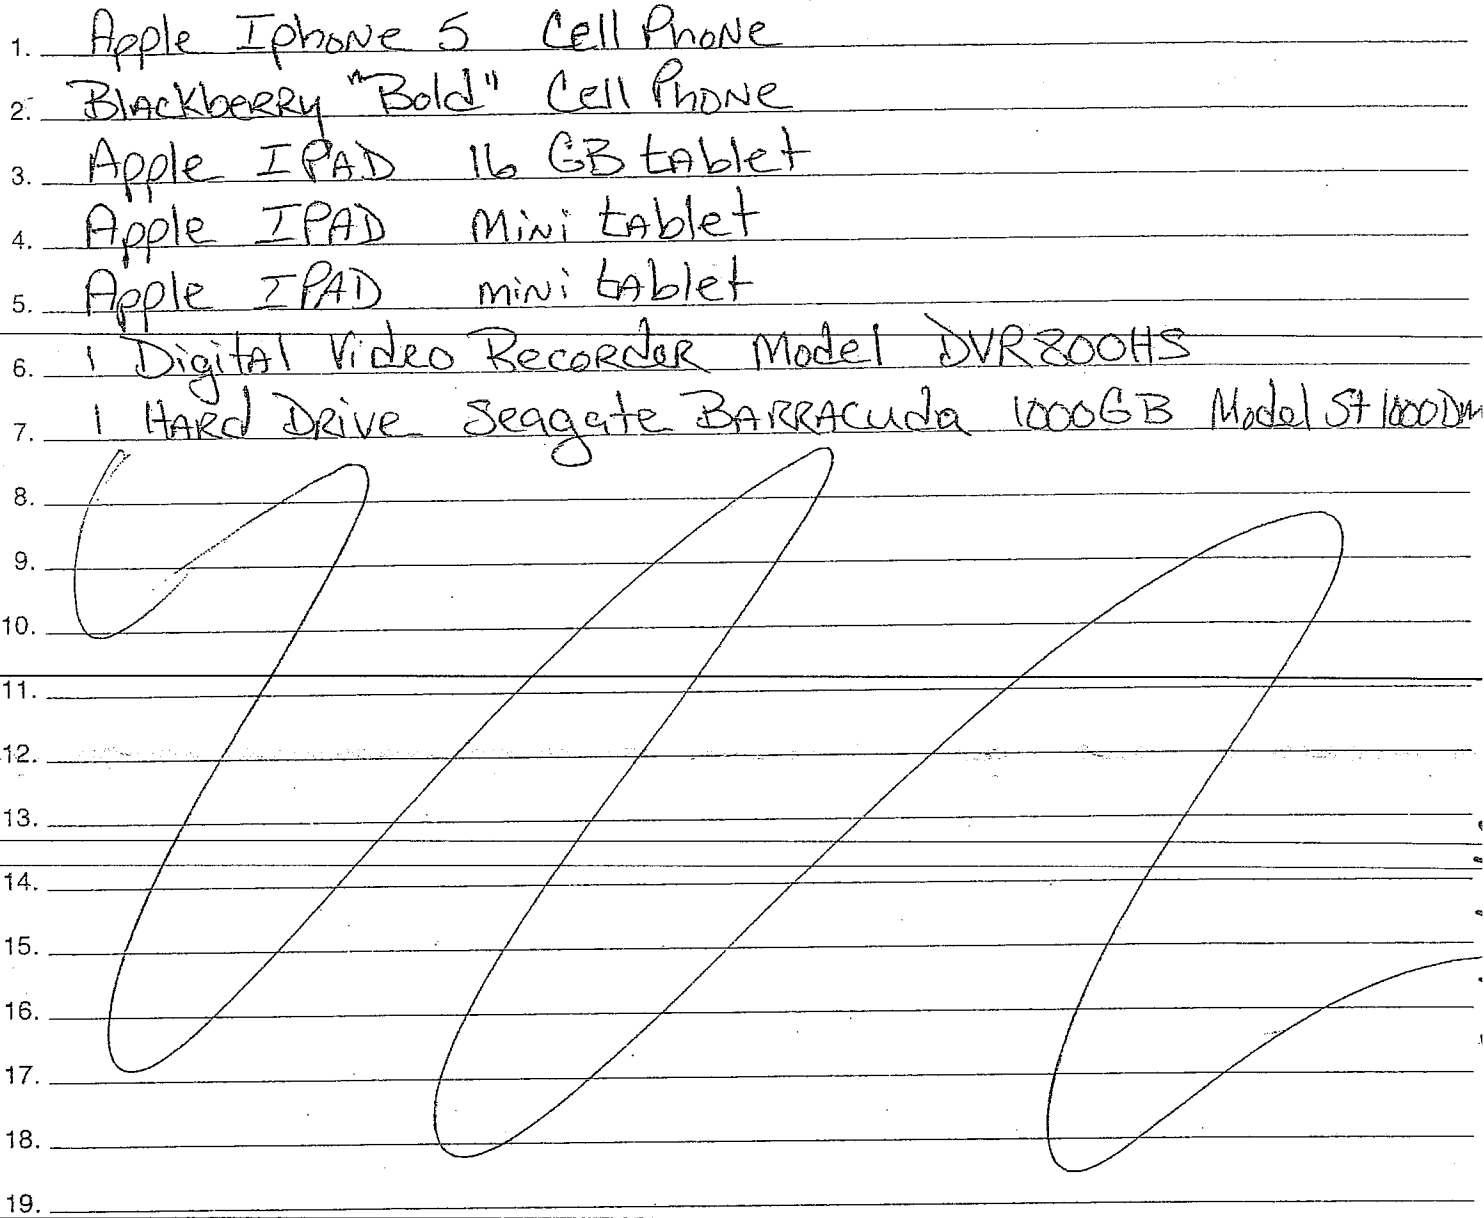 1. Apple Iphone 5 Cell Phone
2. Blackberry "Bold" Cell Phone
3. Apple IPAD 16 GB tablet
4. Apple IPAD Mini tablet
5. Apple IPAD mini tablet
6. 1 Digital Video Recorder Model DVR800HS
7. 1 HARd DRive Seagate BARRACuda 1000GB Model St1000Dm
8.
9.
10.
11.
12.
13.
14.
15.
16.
17.
18.
19.